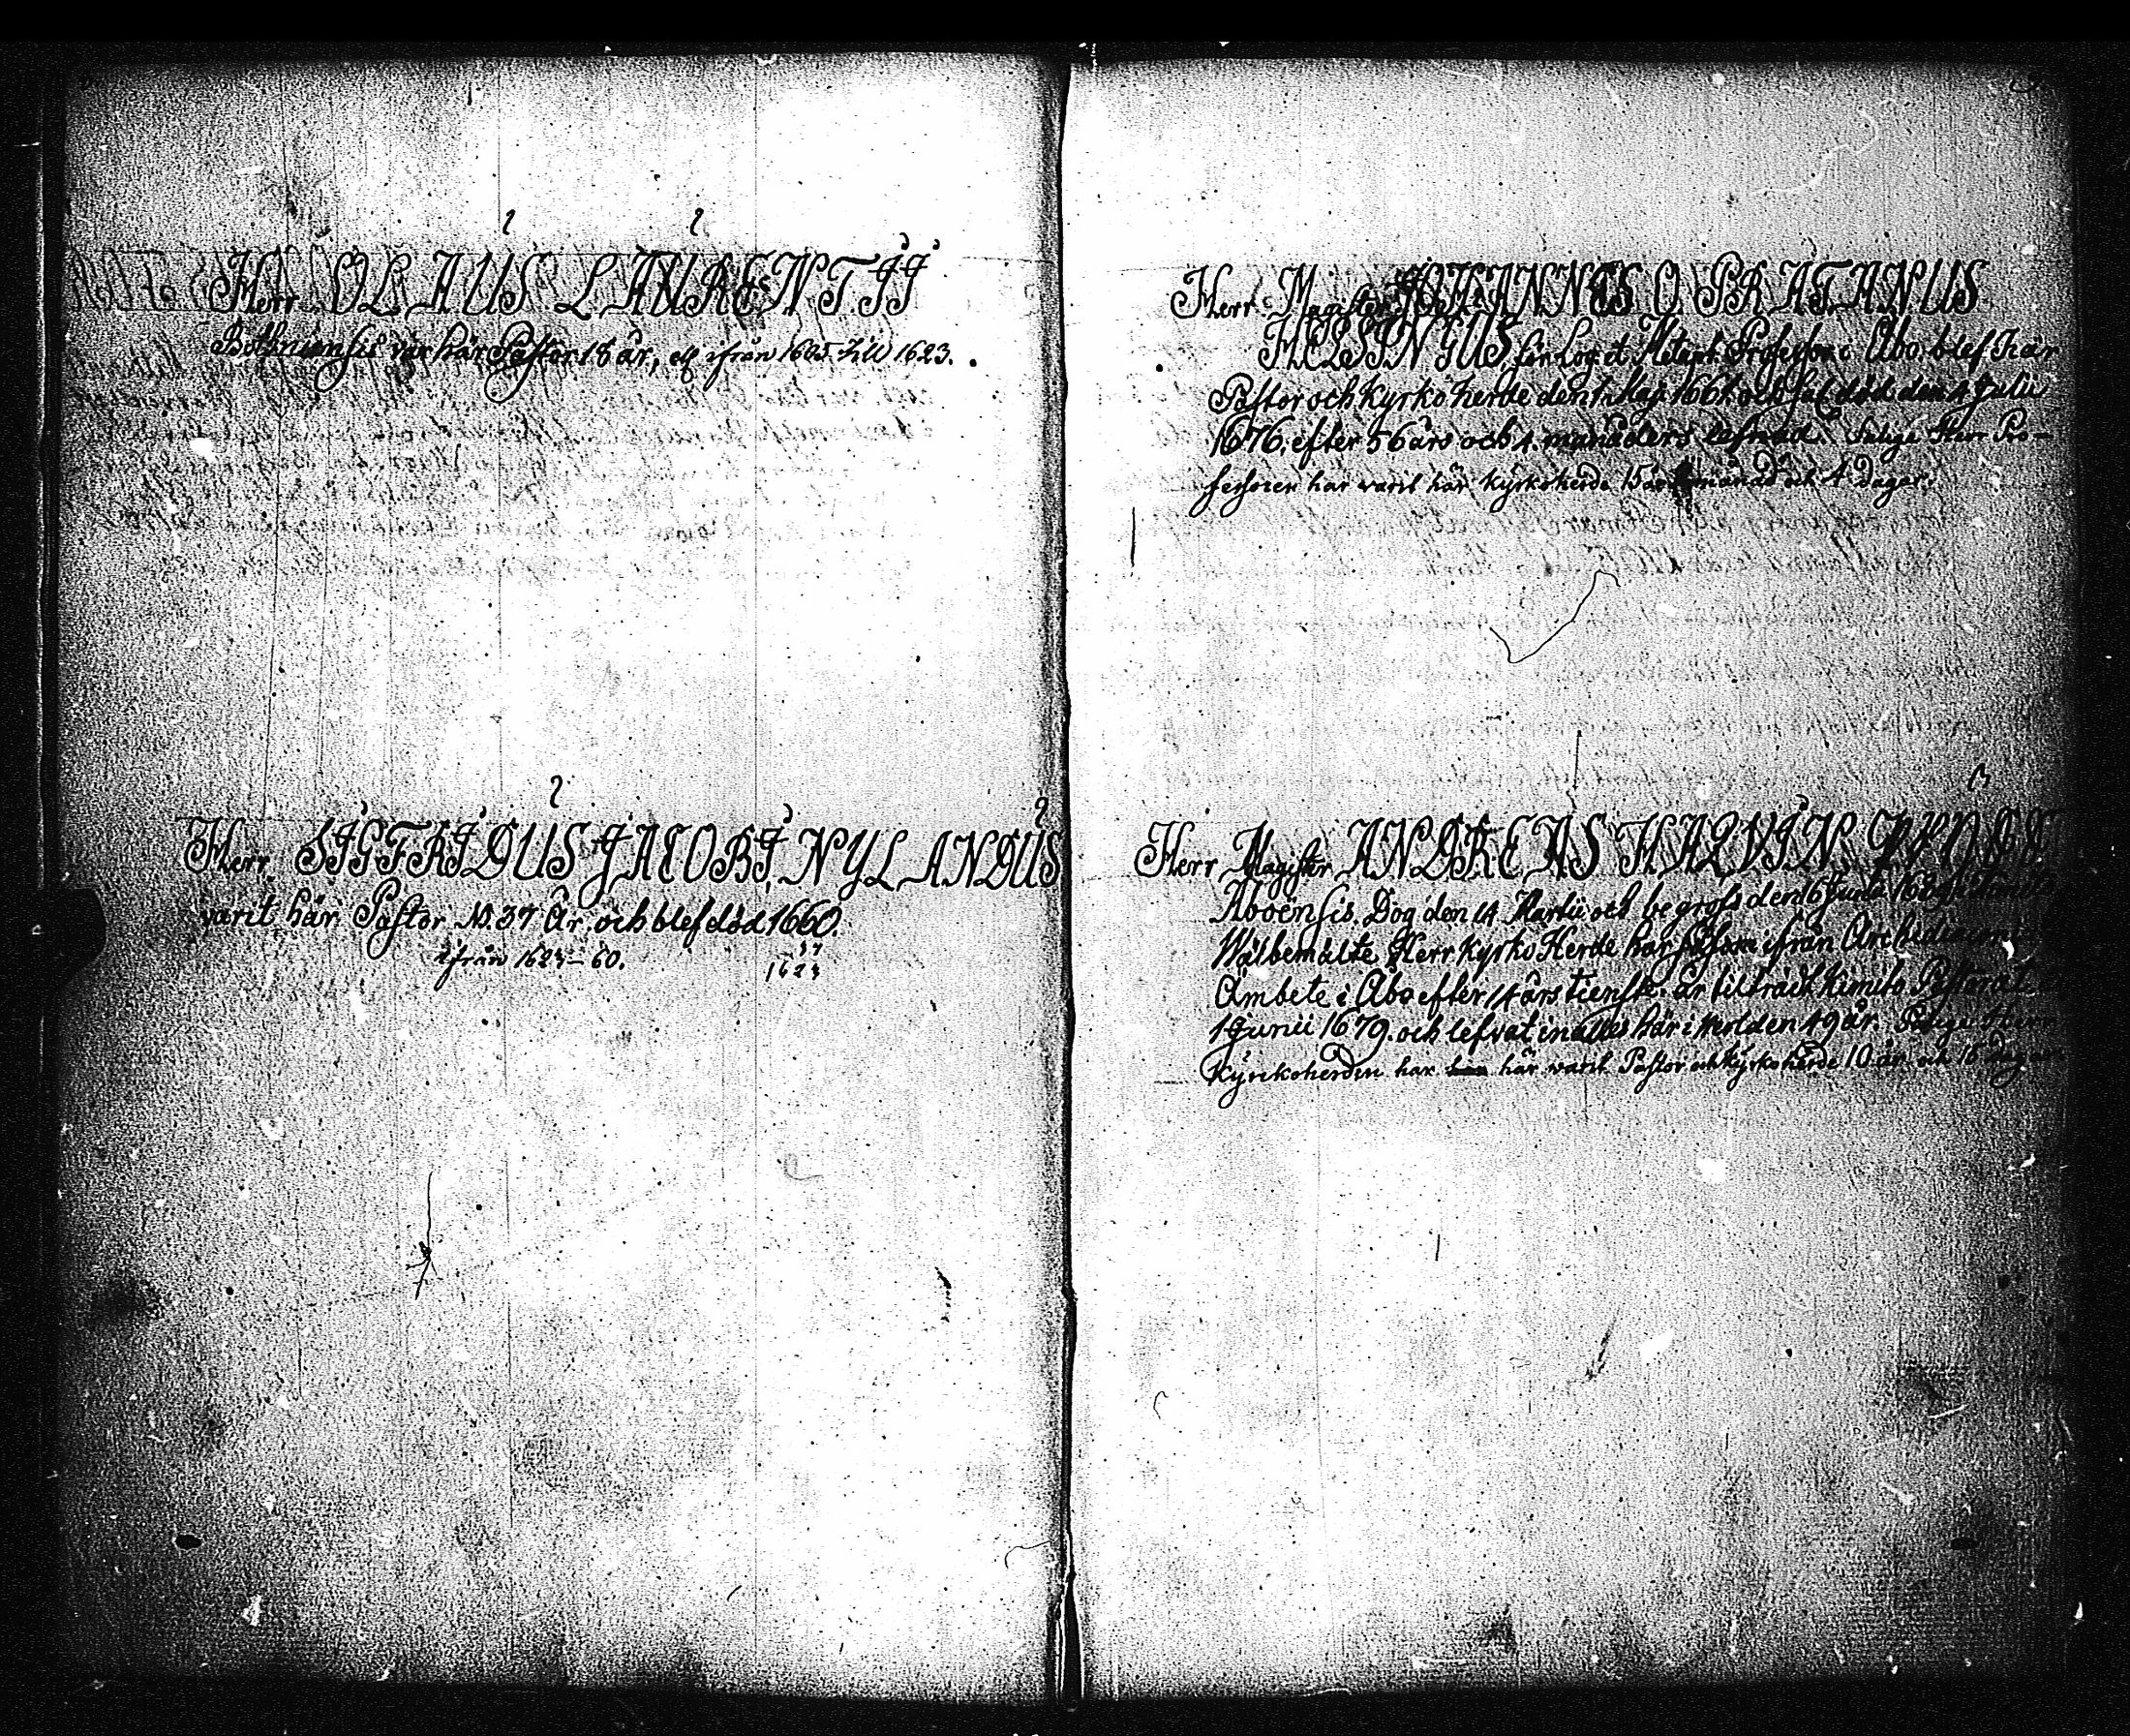 Herr OLAUS LAURENTII
Bothniensis var här Pastor 18 år, elf ifrån 1605 till 1623.
Herr SIGFRIDUS JACOBI, NYLANDUS
varit här Pastor No. 37 År, och blef död 1660.
ifrån 1623–60.
37
1623
Herr Magister JOHANNES O. PRATANUS
HELSINGUS, för Log. et Metaph. Professor i Åbo, blef här
Pastor och Kyrkoherde den 1 Maji 1661. och Sal. död den 4 Julii
1676, efter 56 års och 4. månaders lefnad. Salige Herr Pro-
fessoren har warit här Kyrkoherde 15 år månad och 4 Dagar.
Herr Magister ANDREAS HAQVIN
Aboënsis. Dog den 14 Martii och begrofs den 16 Junii
Wälbemälte Herr Kyrko Herde har ifrån Archediaconi
Ämbete i Åbo efter 14 års tienste år tilträdt Kimito Pastorat
1 Junii 1679. och lefvat in alles här i Verlden 49 år. Salige Herr
Kyrckoherden har här warit Pastor och Kyrkoherde 10 år och 16 Dagar.